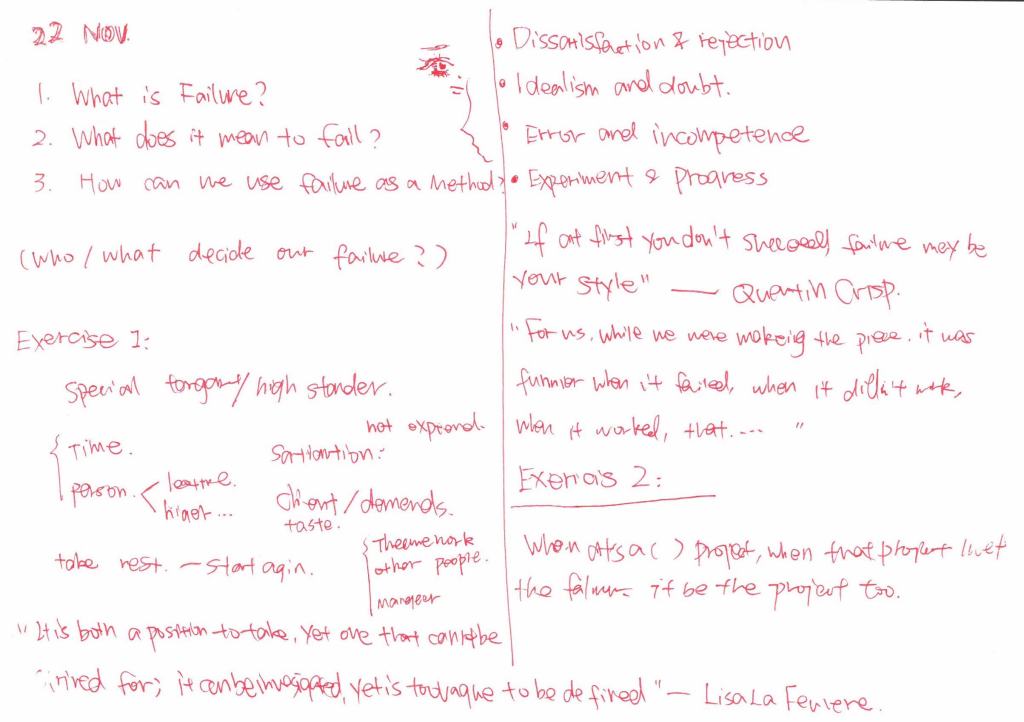 22 NOV.
1. What is Failure?
2. What does it mean to fail?
3. How can we use failure as a Method?
(who / what decide our failure?)
Exercise 1:
Special / high stander.
Time.
person.
higer...
not
client / demends.
taste.
take rest. — start agin.
other people.
"It is both a position to take, yet one that can't be
for; it can be, yet is to be defined" — Lisa La Feuvere.
• Dissatisfaction & rejection
• Idealism and doubt.
• Error and incompetence
• Experiment & Progress
"If at first you don't succeed, failure may be
your style" — Quentin Crisp.
"For us, while we were makeing the piece. it was
funnier when it failed, when it didn't work,
when it worked, that.... "
Exercis 2:
When a ( ) project, when that
the it be the project too.